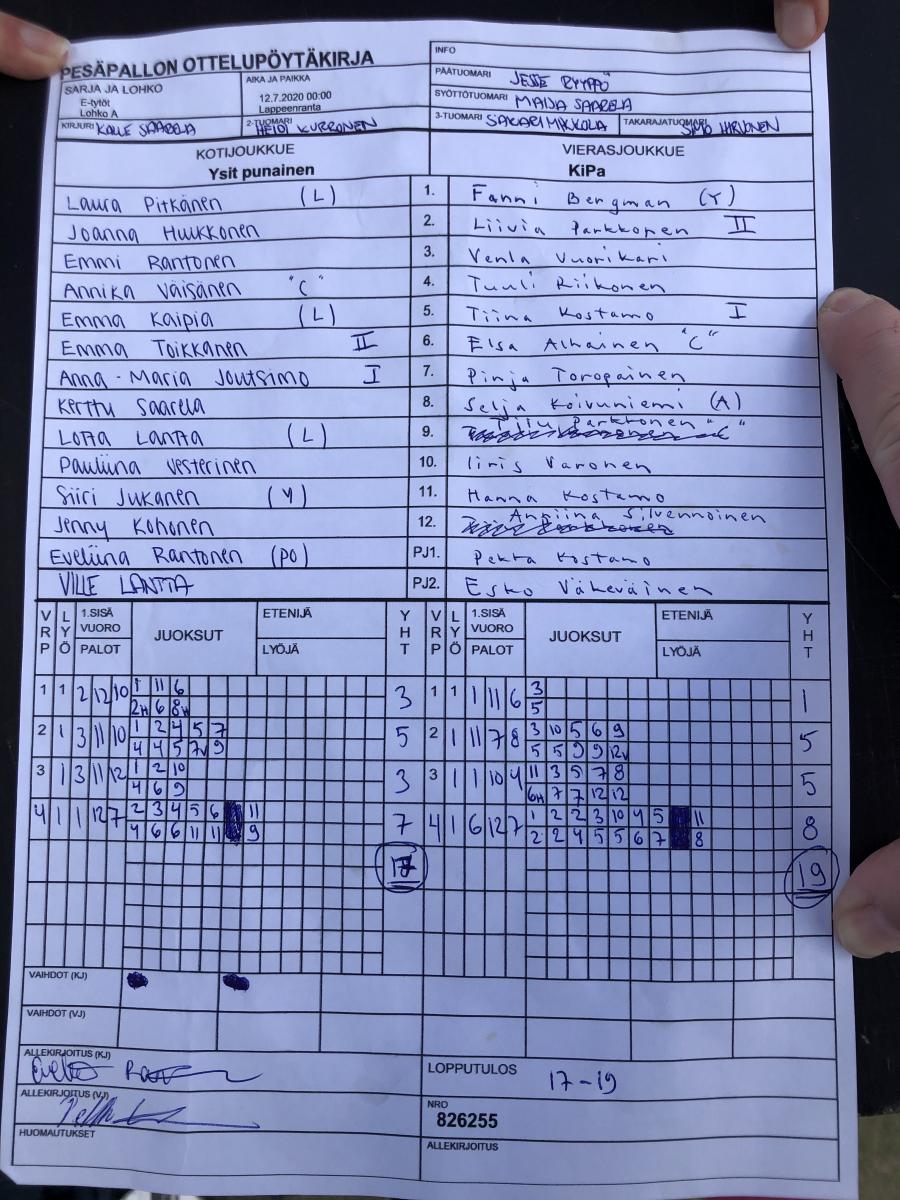 PESÄPALLON OTTELUPÖYTÄKIRJA
SARJA JA LOHKO
E-tytöt
Lohko A
AIKA JA PAIKKA
12.7.2020 00:00
Lappeenranta
KIRJURI KALLE SAARELA
2-TUOMARI HEIDI KURRONEN
INFO
PÄÄTUOMARI JESSE RYYPPÖ
SYÖTTÖTUOMARI MAIJA SAARELA
3-TUOMARI SAKARI MAKKOLA
TAKARAJATUOMARI SIMO HIRVONEN
KOTIJOUKKUE
Ysit punainen
VIERASJOUKKUE
KiPa
Laura Pitkänen (L) 1. Fanni Bergman (Y)
Joanna Huukkonen 2. Liivia Parkkonen II
Emmi Rantonen 3. Venla Vuorikari
Annika Väisänen "C" 4. Tuuli Riikonen
Emma Kaipia (L) 5. Tiina Kostamo I
Emma Toikkanen II 6. Elsa Alhainen "C"
Anna-Maria Joutsimo I 7. Pinja Toropainen
Kerttu Saarela 8. Selja Koivuniemi (A)
Lotta Lantta (L) 9. Parkkonen
Pauliina Vesterinen 10. Iiris Varonen
Siiri Jukanen (Y) 11. Hanna Kostamo
Jenny Kohonen 12. Anniina Silvennoinen
Eveliina Rantonen (PO) PJ1. Pekka Kostamo
VILLE LANTTA PJ2. Esko Väkeväinen
VRP LYÖ 1.SISÄ VUORO PALOT JUOKSUT ETENIJÄ LYÖJÄ YHT
VRP LYÖ 1.SISÄ VUORO PALOT JUOKSUT ETENIJÄ LYÖJÄ YHT
1 1 2 12 10 1 11 6 3 1 1 1 11 6 3 1
2H 6 8H 5
2 1 3 11 10 1 2 4 5 7 5 2 1 11 7 8 3 10 5 6 9 5
4 4 5 7V 9 5 5 9 9 12V
3 1 3 11 12 1 2 10 3 3 1 1 10 4 11 3 5 7 8 5
4 6 9 6H 7 7 12 12
4 1 1 12 7 2 3 4 5 6 11 7 4 1 6 12 7 1 2 2 3 10 4 5 11 8
4 6 6 11 11 9 2 2 4 5 5 6 7 8
17 19
VAIHDOT (KJ)
VAIHDOT (VJ)
ALLEKIRJOITUS (KJ)
LOPPUTULOS 17-19
ALLEKIRJOITUS (VJ)
NRO
826255
HUOMAUTUKSET
ALLEKIRJOITUS